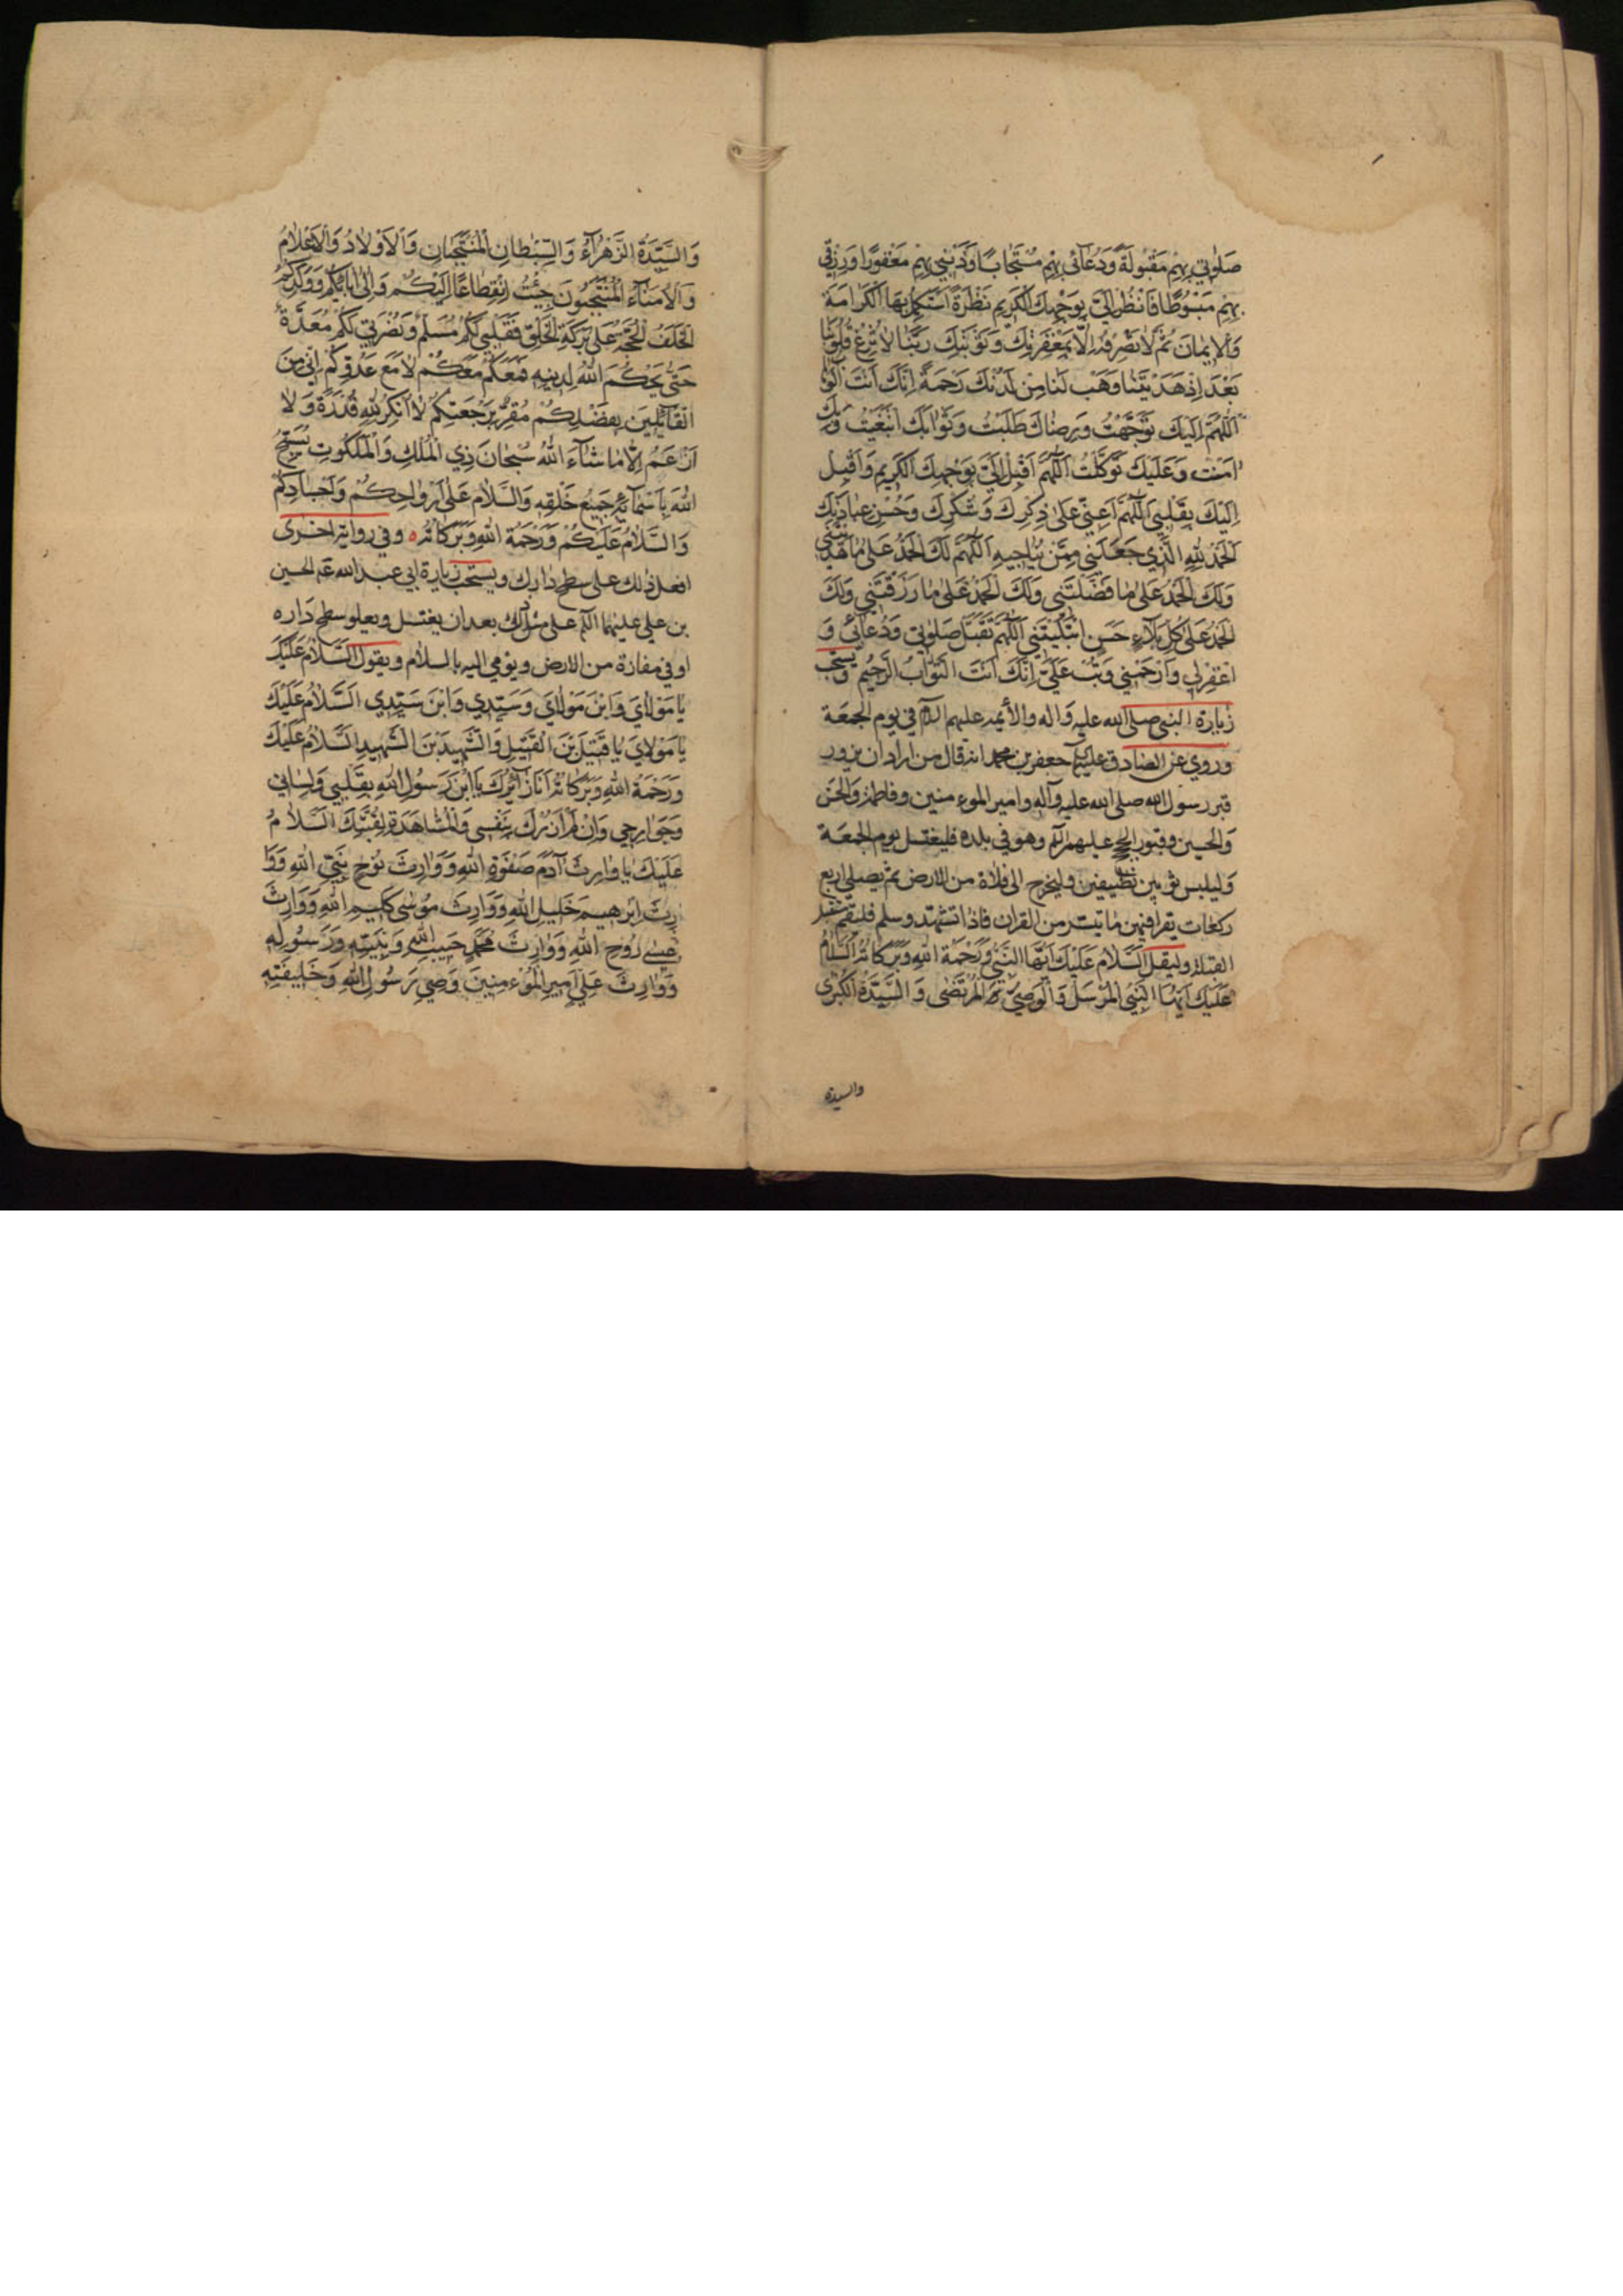 صَلٰوتي بِهِمْ مَقْبُولَةً وَدُعَآئي بِهِمْ مُسْتَجٰابًا وَذَنْبي بِهِمْ مَغْفُورًا وَرِزْقي
بِهِمْ مَبْسُوطًا فَانْظُرْ اِلَيَّ بِوَجْهِكَ الْكَرِيمِ نَظْرَةً اَسْتَكْمِلُ بِهَا الْكَرٰامَةَ
وَالْاِيمٰانَ ثُمَّ لٰا تَصْرِفْهُ اِلّٰا بِمَغْفِرَتِكَ وَتَوْبَتِكَ رَبَّنٰا لٰا تُزِغْ قُلُوبَنٰا
بَعْدَ اِذْ هَدَيْتَنٰا وَهَبْ لَنٰا مِنْ لَدُنْكَ رَحْمَةً اِنَّكَ اَنْتَ الْوَهّٰاب
اَللّٰهُمَّ اِلَيْكَ تَوَجَّهْتُ وَرِضٰاكَ طَلَبْتُ وَثَوٰابَكَ ابْتَغَيْتُ وَبِكَ
اٰمَنْتُ وَعَلَيْكَ تَوَكَّلْتُ اَللّٰهُمَّ اَقْبِلْ اِلَيَّ بِوَجْهِكَ الْكَرِيمِ وَاَقْبِلْ
اِلَيْكَ بِقَلْبِي اَللّٰهُمَّ اَعِنّي عَلٰى ذِكْرِكَ وَشُكْرِكَ وَحُسْنِ عِبٰادَتِكَ
اَلْحَمْدُ لِلّٰهِ الَّذي جَعَلَني مِمَّنْ يُنٰاجيهِ اَللّٰهُمَّ لَكَ الْحَمْدُ عَلٰى مٰا هَدَيْتَني
وَلَكَ الْحَمْدُ عَلٰى مٰا فَضَّلْتَني وَلَكَ الْحَمْدُ عَلٰى مٰا رَزَقْتَني وَلَكَ
الْحَمْدُ عَلٰى كُلِّ بَلٰاءٍ حَسَنٍ ابْتَلَيْتَني اَللّٰهُمَّ تَقَبَّلْ صَلٰوتي وَدُعٰائي وَ
اغْفِرْ لي وَارْحَمْني وَتُبْ عَلَيَّ اِنَّكَ اَنْتَ التَّوّٰابُ الرَّحيمُ ويستحب
زيارة النبي صلى الله عليه وَاله والأيمه عليهم السلم في يوم الجمعَة
وروي عن الصادق عليه السلم جعفر بن محمد انه قال من اراد ان يزور
قبر رسول الله صلى الله عليه وآله وامير الموءمنين وفاطمة وَالحَسَن
وَالحسين وقبور الحجج عليهم السلم وهو في بلده فليغتسل يوم الجمعَة
وَليلبس ثوبين نظيفين وليخرج الى فلاة من الارض ثم يصلي اربع
ركعات يقرا فيهن ما تيسر من القران فاذا تشهد وسلم فليقم مستقبل
القبلة وليقل اَلسَّلٰامُ عَلَيْكَ اَيُّهَا النَّبِيُّ وَرَحْمَةُ اللّٰهِ وَبَرَكٰاتُهُ اَلسَّلٰامُ
عَلَيْكَ اَيُّهَا النَّبِيُّ الْمُرْسَلُ وَالْوَصِيُّ الْمُرْتَضٰى وَالسَّيِّدَةُ الْكُبْرٰى
والسيدة
وَالسَّيِّدَةُ الزَّهْرٰآءُ وَالسِّبْطٰانِ الْمُنْتَجَبٰانِ وَالْاَوْلٰادُ وَالْاَعْلٰامُ
وَالْاُمَنٰآءُ الْمُنْتَجَبُونَ جِئْتُ انْقِطٰاعًا اِلَيْكُمْ وَاِلٰى اٰبٰائِكُمْ وَوَلَدِكُمُ
الْخَلَفِ الْحُجَّةِ عَلٰى بَرَكَةِ الْخَلْقِ فَقَلْبي لَكُمْ مُسَلِّمٌ وَنُصْرَتي لَكُمْ مُعَدَّةٌ
حَتّٰى يَحْكُمَ اللّٰهُ لِدينِهِ فَمَعَكُمْ مَعَكُمْ لٰا مَعَ عَدُوِّكُمْ اِنّي مِنَ
الْقٰآئِلِينَ بِفَضْلِكُمْ مُقِرٌّ بِرَجْعَتِكُمْ لٰا اُنْكِرُ لِلّٰهِ قُدْرَةً وَلٰا
اَزْعَمُ اِلّٰا مٰا شٰآءَ اللّٰهُ سُبْحٰانَ ذِي الْمُلْكِ وَالْمَلَكُوتِ يُسَبِّحُ
اللّٰهَ بِاَسْمٰآئِهِ جَميعُ خَلْقِهِ وَالسَّلٰامُ عَلٰى اَرْوٰاحِكُمْ وَاَجْسٰادِكُمْ
وَالسَّلٰامُ عَلَيْكُمْ وَرَحْمَةُ اللّٰهِ وَبَرَكٰاتُهُ ه وفي رواية اخرى
افعل ذلك على سطح دارك ويستحب زيارة ابي عبد الله الحسين
بن علي عليهما السلم على مثل ذلك بعد ان يغتسل ويعلو سطح دَاره
او في مفازة من الارض ويومي اليه بالسلام ويقول اَلسَّلٰامُ عَلَيْكَ
يٰا مَوْلٰايَ وَابْنَ مَوْلٰايَ وَسَيِّدي وَابْنَ سَيِّدي اَلسَّلٰامُ عَلَيْكَ
يٰا مَوْلٰايَ يٰا قَتيلَ بْنَ الْقَتيلِ وَالشَّهيدَ بْنَ الشَّهيدِ اَلسَّلٰامُ عَلَيْكَ
وَرَحْمَةُ اللّٰهِ وَبَرَكٰاتُهُ اَنَا زٰآئِرُكَ يَا ابْنَ رَسُولِ اللّٰهِ بِقَلْبي وَلِسٰاني
وَجَوٰارِحي وَاِنْ لَمْ اَزُرْكَ بِنَفْسي وَالْمُشٰاهَدَةِ لِقُبَّتِكَ اَلسَّلٰامُ
عَلَيْكَ يٰا وٰارِثَ آدَمَ صَفْوَةِ اللّٰهِ وَوٰارِثَ نُوحٍ نَبِيِّ اللّٰهِ وَوٰا
رِثَ اِبْرٰهيمَ خَليلِ اللّٰهِ وَوٰارِثَ مُوسٰى كَليمِ اللّٰهِ وَوٰارِثَ
عيسٰى رُوحِ اللّٰهِ وَوٰارِثَ مُحَمَّدٍ حَبيبِ اللّٰهِ وَنَبِيِّهِ وَرَسُولِهِ
وَوٰارِثَ عَلِيٍّ اَميرِ الْمُوءْمِنينَ وَصِيِّ رَسُولِ اللّٰهِ وَخَليفَتِهِ